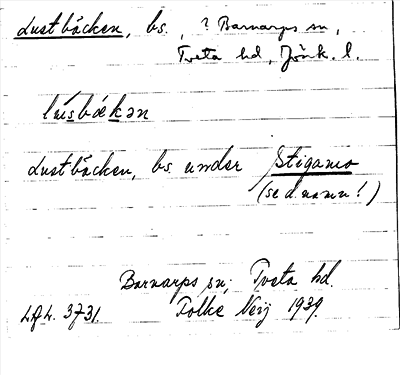 Lustbäcken, bs., ? Barnarps sn,
Tveta hd, Jönk. l.
lùsbækən
Lustbäcken, bs. under Stigamo
(se d. namn!)
Barnarps sn, Tveta hd.
3731. Folke Neij 1939.